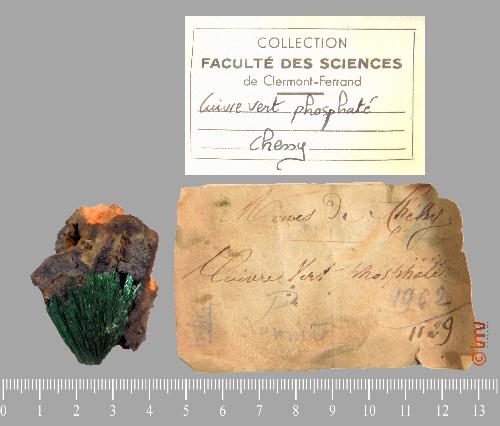 COLLECTION
FACULTÉ DES SCIENCES
de Clermont-Ferrand
Cuivre vert phosphaté
Chessy
Mines de Chessy
Cuivre Vert phosphaté
1962
1129
©lmv
0 1 2 3 4 5 6 7 8 9 10 11 12 13